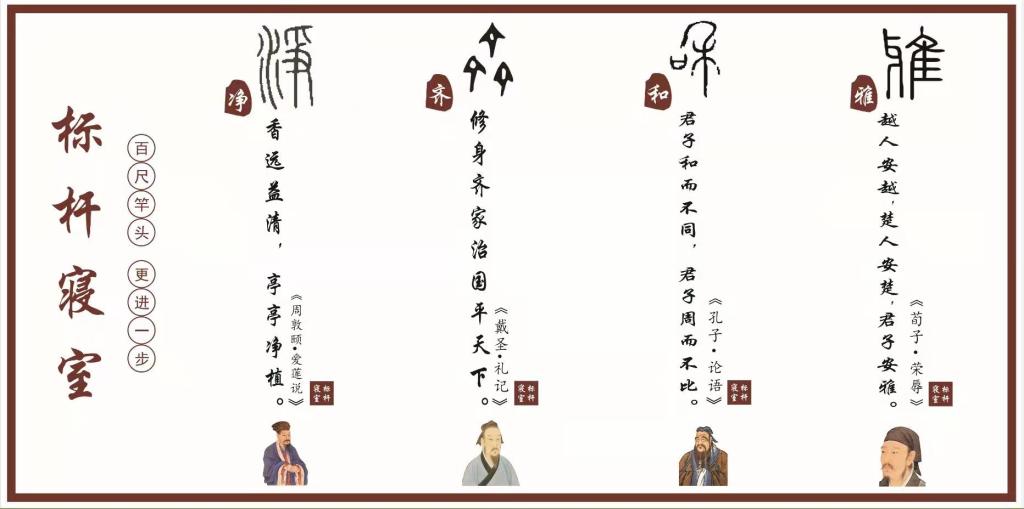 标杆寝室
百尺竿头 更进一步
淨
净
香远益清，亭亭净植。
《周敦颐•爱莲说》
标杆寝室
齊
齐
修身齐家治国平天下。
《戴圣•礼记》
标杆寝室
和
和
君子和而不同，君子周而不比。
《孔子•论语》
标杆寝室
雅
雅
越人安越，楚人安楚，君子安雅。
《荀子•荣辱》
标杆寝室